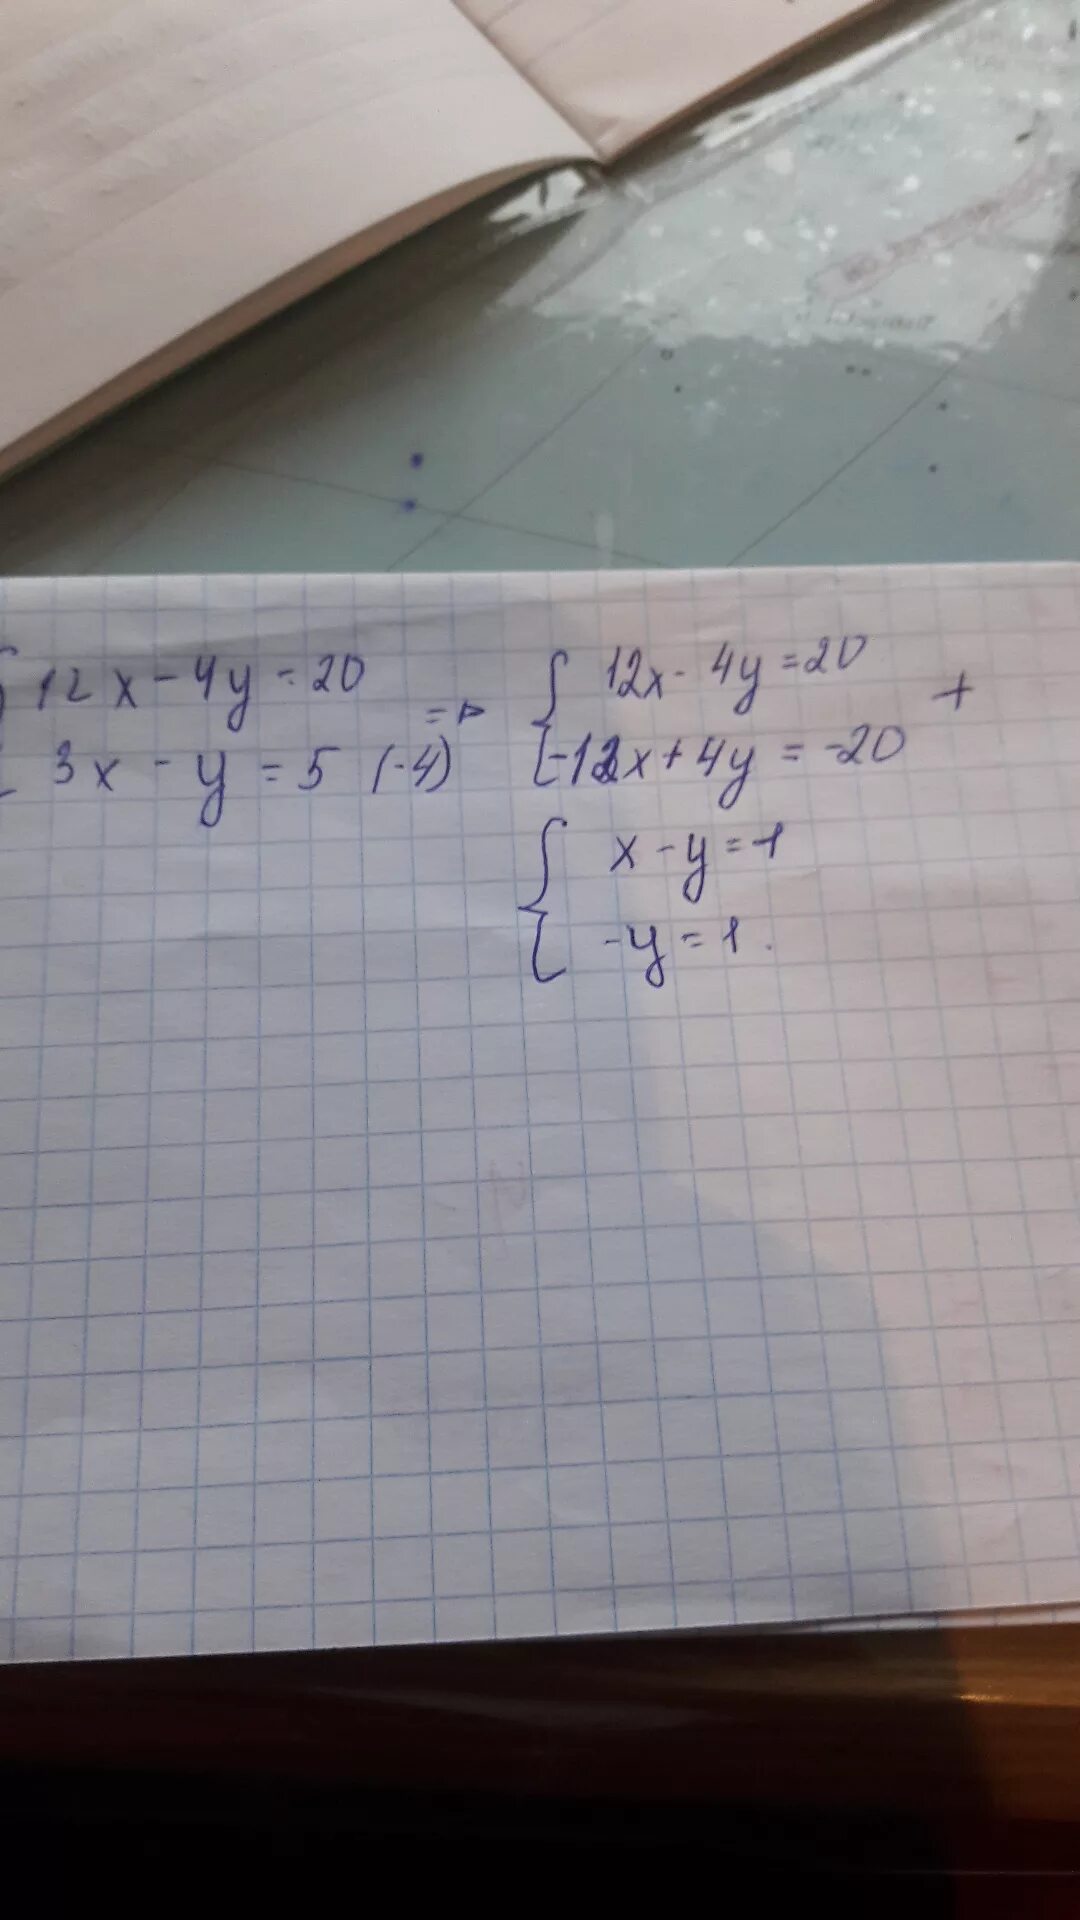 12x - 4y = 20
3x - y = 5 (-4)
=>
12x - 4y = 20
-12x + 4y = -20
+
x - y = 1
-y = 1.